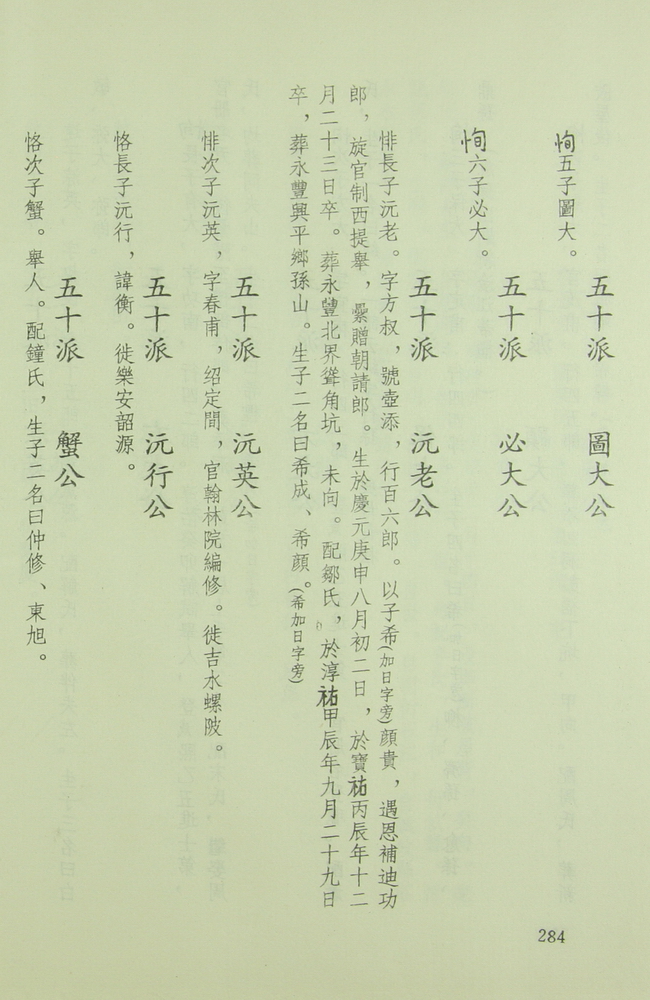 五十派　圖大公
恂五子圖大。
五十派　必大公
恂六子必大。
五十派　沅老公
悱長子沅老。字方叔，號壺添，行百六郎。以子希(加日字旁)顏貴，遇恩補迪功
郎，旋官制西提舉，纍贈朝請郎。生於慶元庚申八月初二日，於寶祐丙辰年十二
月二十三日卒。葬永豐北界聳角坑，未向。配鄒氏，於淳祐甲辰年九月二十九日
卒，葬永豐興平鄉孫山。生子二名曰希成、希顏。(希加日字旁)
五十派　沅英公
悱次子沅英，字春甫，绍定間，官翰林院編修。徙吉水螺陂。
五十派　沅行公
恪長子沅行，諱衡。徙樂安韶源。
五十派　蟹公
恪次子蟹。舉人。配鐘氏，生子二名曰仲修、東旭。
284